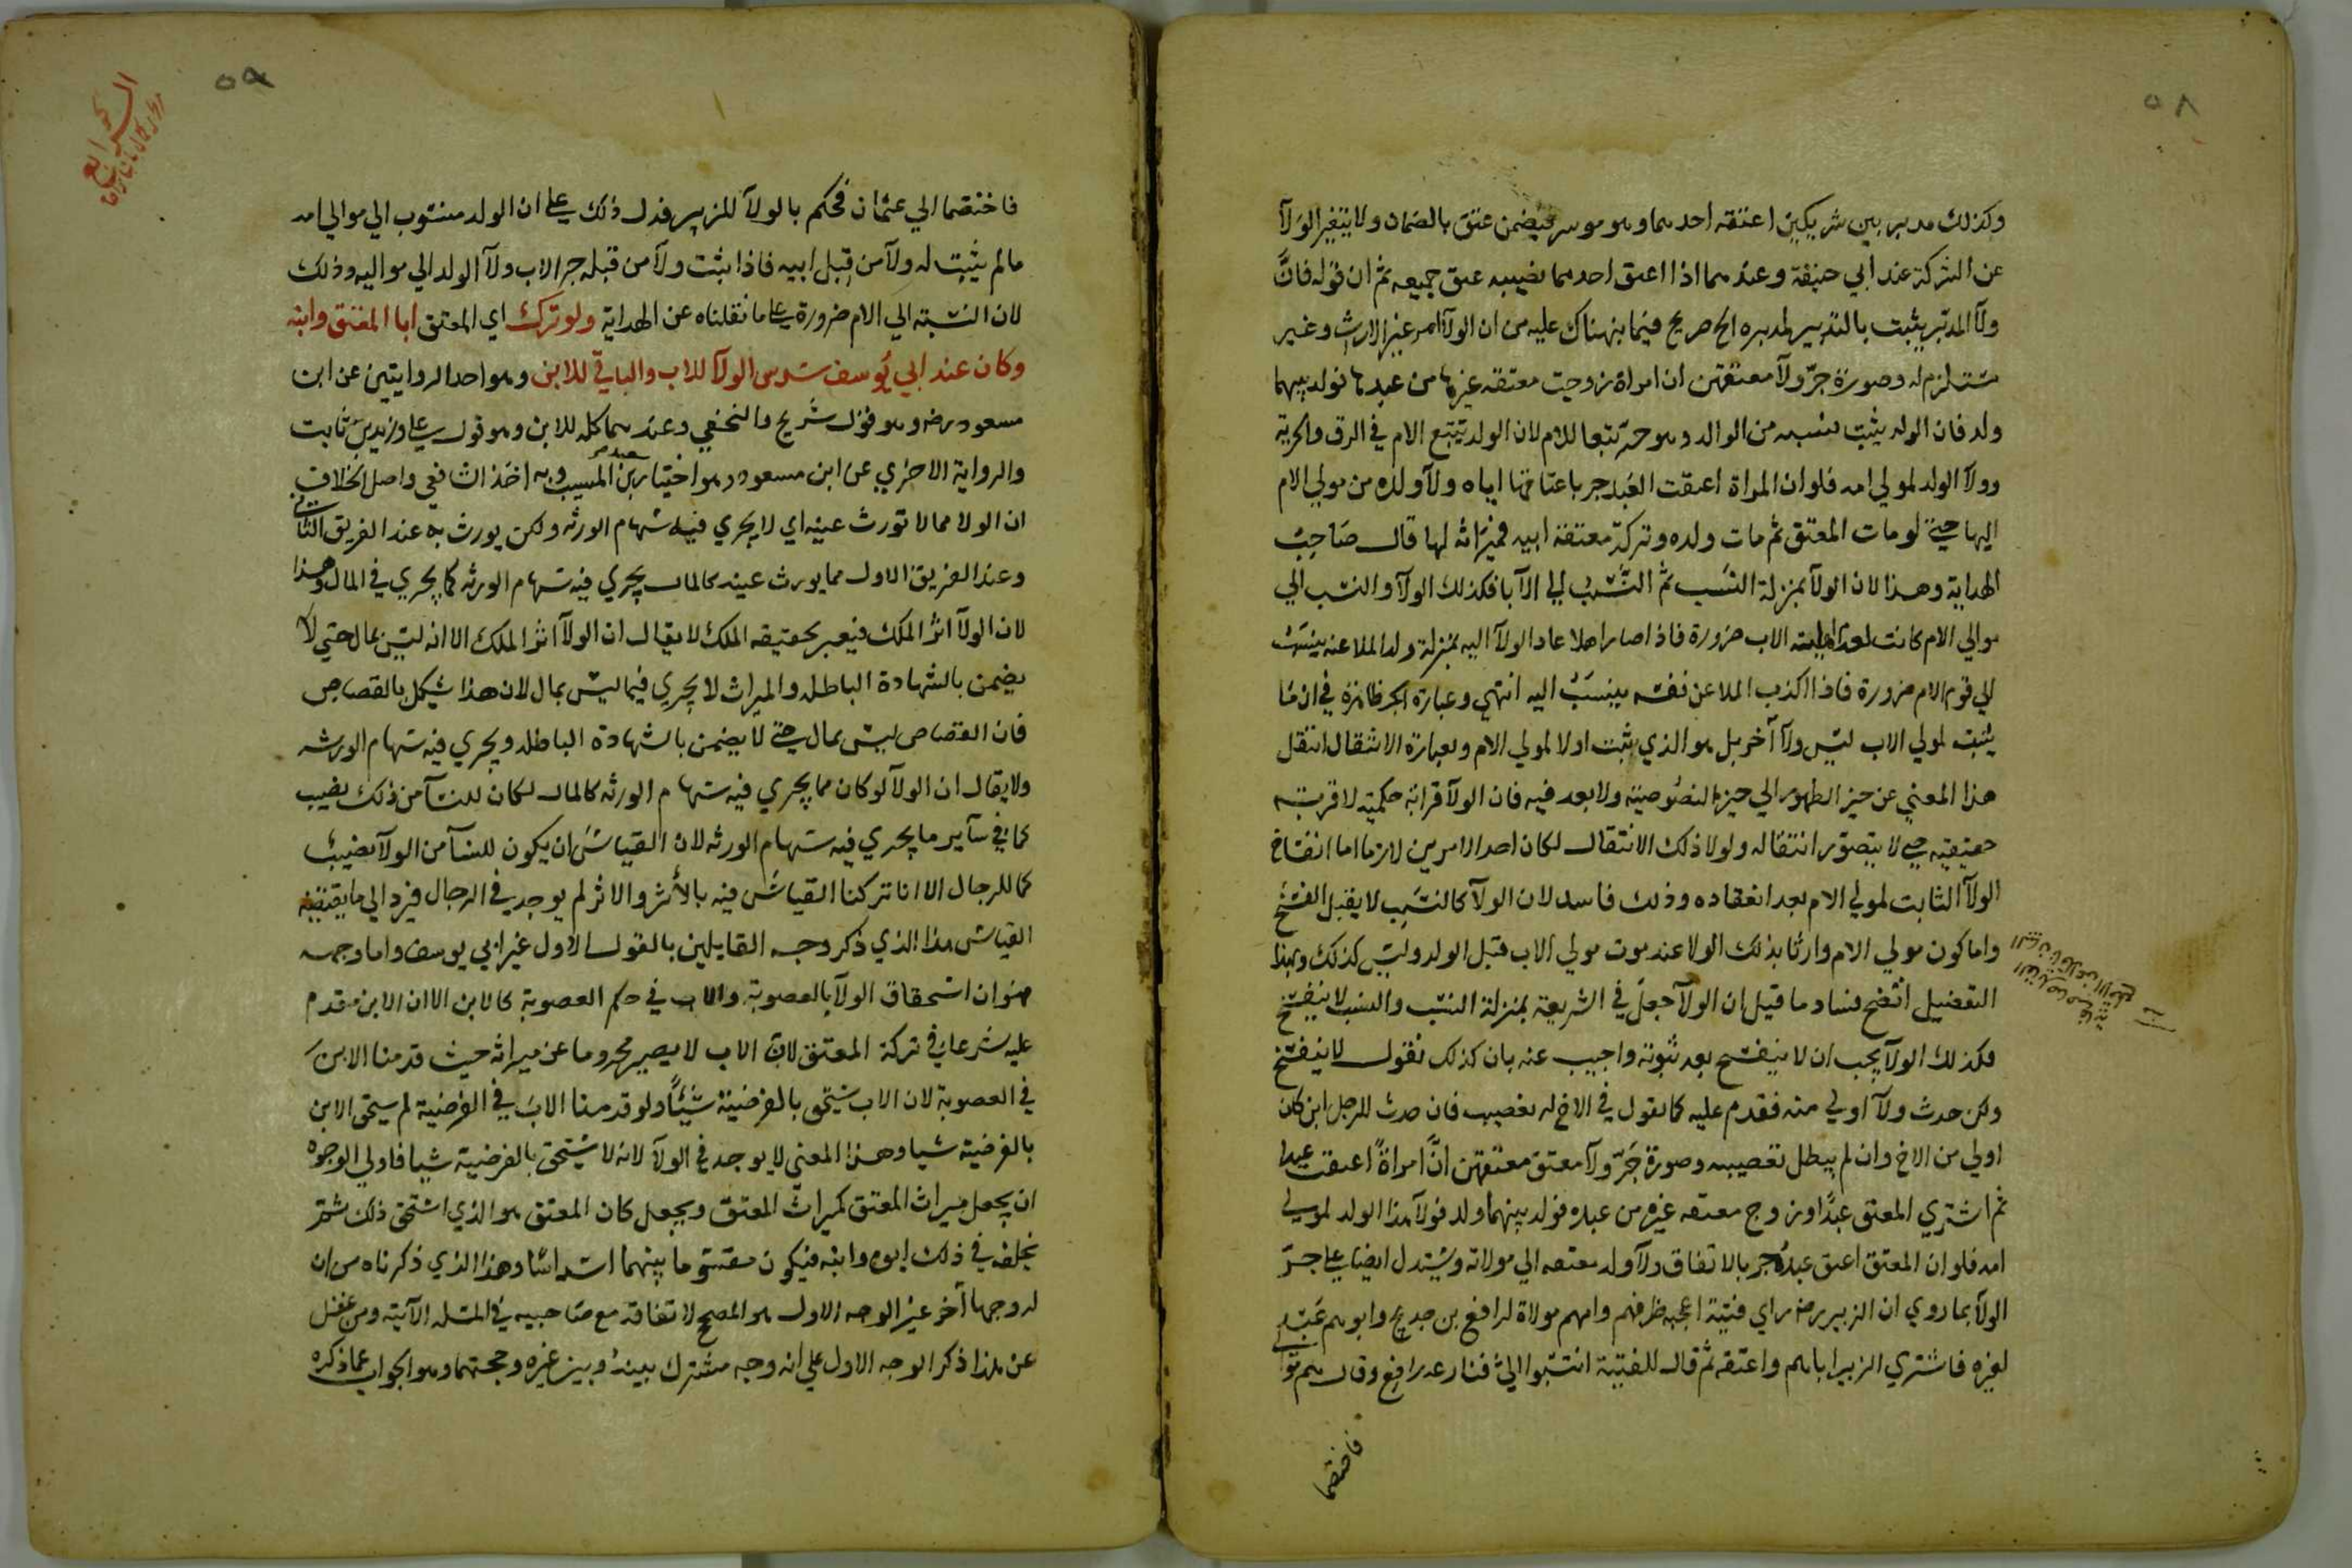 ٥٨
وكذلك مدبر بين شريكين اعتقه احدهما وهو موسر فيضمن عتق بالضمان ولا يتغير الولآ
عن الشركة عند ابي حنيفة وعندهما اذا اعتق احدهما نصيبه عتق جميعه ثم ان قوله فان
ولآ المدبر يثبت بالتدبير لمدبره الخ صريح فيما نبهناك عليه من ان الولآ امر غير الارث وغير
مستلزم له وصورة جر ولآ معتقهن ان امراة زوجت معتقه غيرها من عبدها فولد بينهما
ولد فان الولد يثبت نسبه من الوالد وهو حر تبعا للام لان الولد يتبع الام في الرق والحرية
وولآ الولد لمولي امه فلو ان المراة اعتقت العبد جر باعتاقها اياه ولآ ولده من مولي الام
اليها حتي لو مات المعتق ثم مات ولده وتركة معتقة ابيه فميراثه لها قال صاحب
الهداية وهذا لان الولآ بمنزلة النسب ثم النسب الي الآبا فكذلك الولآ والنسب الي
موالي الام كانت لعدم اهلية الاب ضرورة فاذا صار اهلا عاد الولآ اليه بمنزلة ولد الملاعنه ينسب
الي قوم الام ضرورة فاذا اكذب الملاعن نفسه ينسب اليه انتهي وعبارة الجر ظاهرة في ان ما
يثبت لمولي الاب ليس ولآ آخر بل هو الذي يثبت اولا لمولي الام وبعبارة الانتقال انتقل
هذا المعني عن حيز الظهور الي حيز النصوصية ولا بعد فيه فان الولآ قرابة حكمية لا قرابة
حقيقيه حتي لا يتصور انتقاله ولولا ذلك الانتقال لكان احد الامرين لازما اما انفساخ
الولآ الثابت لمولي الام بعد انعقاده وذلك فاسد لان الولآ كالنسب لا يقبل الفسخ
واما كون مولي الام وارثا بذلك الولا عند موت مولي الاب قبل الولد وليس كذلك وبهذا
التفصيل اتضح فساد ما قيل ان الولآ جعل في الشريعة بمنزلة النسب والنسب لا ينفسخ
فكذلك الولآ يجب ان لا ينفسخ بعد ثبوته واجيب عنه بان كذلك نقول لا ينفسخ
ولكن حدث ولآ اولي منه فقدم عليه كما نقول في الاخ له تعصيب فان حدث للرجل ابن كان
اولي من الاخ وان لم يبطل تعصيبه وصورة جر ولآ معتق معتقهن ان امراة اعتقت عبدا
ثم اشتري المعتق عبدا وزوج معتقه غيره من عبده فولد بينهما ولد فولآ هذا الولد لمولي
امه فلو ان المعتق اعتق عبده جر بالاتفاق ولآ ولد معتقه الي مولاته ويستدل ايضا علي جر
الولآ بما روي ان الزبير رضه راي فتية اعجبه ظرفهم وامهم مولاة لرافع بن خديج وابوهم عبد
لغيره فاشتري الزبير اباهم واعتقه ثم قال للفتية انتسبوا الي فنازعه رافع وقال هم
فاختصما
٥٩
فاختصما الي عثمان فحكم بالولآ للزبير فدل ذلك علي ان الولد منسوب الي موالي امه
ما لم يثبت له ولآ من قبل ابيه فاذا يثبت ولآ من قبله جر الاب ولآ الولد الي مواليه وذلك
لان النسبة الي الام ضرورة علي ما نقلناه عن الهداية ولو ترك اي المعتق ابا المعتق وابنه
وكان عند ابي يوسف سدس الولآ للاب والباقي للابن وهو احد الروايتين عن ابن
مسعود رضه وهو قول شريح والنخعي وعندهما كله للابن وهو قول علي وزيد بن ثابت
والرواية الاخري عن ابن مسعود وهو اختيار سعيد بن المسيب وبه اخذ الشافعي واصل الخلاف
ان الولا مما لا تورث عينه اي لا يجري فيه سهام الورثه ولكن يورث به عند الفريق الثاني
وعند الفريق الاول مما يورث عينه كالمال يجري فيه سهام الورثه كما يجري في المال وهذا
لان الولآ اثر الملك فيعبر بحقيقه الملك لا يقال ان الولآ اثر الملك الا انه ليس بمال حتي لا
يضمن بالشهادة الباطله والميراث لا يجري فيما ليس بمال لان هذا يشكل بالقصاص
فان القصاص ليس بمال حتي لا يضمن بالشهادة الباطله ويجري فيه سهام الورثه
ولا يقال ان الولآ لو كان مما يجري فيه سهام الورثه كالمال لكان للنسآ من ذلك نصيب
كما في سآير ما يجري فيه سهام الورثه لان القياس ان يكون للنسآ من الولآ نصيب
كما للرجال الا انا تركنا القياس فيه بالأثر والاثر لم يوجد في الرجال فيرد الي ما يقتضيه
القياس هذا الذي ذكر وجه القايلين بالقول الاول غير ابي يوسف واما وجهه
فهو ان استحقاق الولآ بالعصوبة والاب في حكم العصوبة كالابن الا ان الابن مقدم
عليه شرعا في تركة المعتق لان الاب لا يصير محروما عن ميراثه حيث قدمنا الابن
في العصوبة لان الاب يستحق بالفرضية شيئا ولو قدمنا الاب في الفرضية لم يستحق الابن
بالفرضية شيا وهذا المعني لا يوجد في الولآ لانه لا يستحق بالفرضية شيا فاولي الوجوه
ان يجعل ميراث المعتق كميراث المعتق ويجعل كان المعتق هو الذي استحق ذلك ثم
يخلفه في ذلك ابوه وابنه فيكون مقسوما بينهما اسداسا وهذا الذي ذكرناه من ان
له وجها آخر غير الوجه الاول هو المصحح لاتفاقه مع صاحبيه في المسله الآتية ومن غفل
عن هذا ذكر الوجه الاول علي انه وجه مشترك بينه وبين غيره وحجتهما وهو الجواب عما ذكره